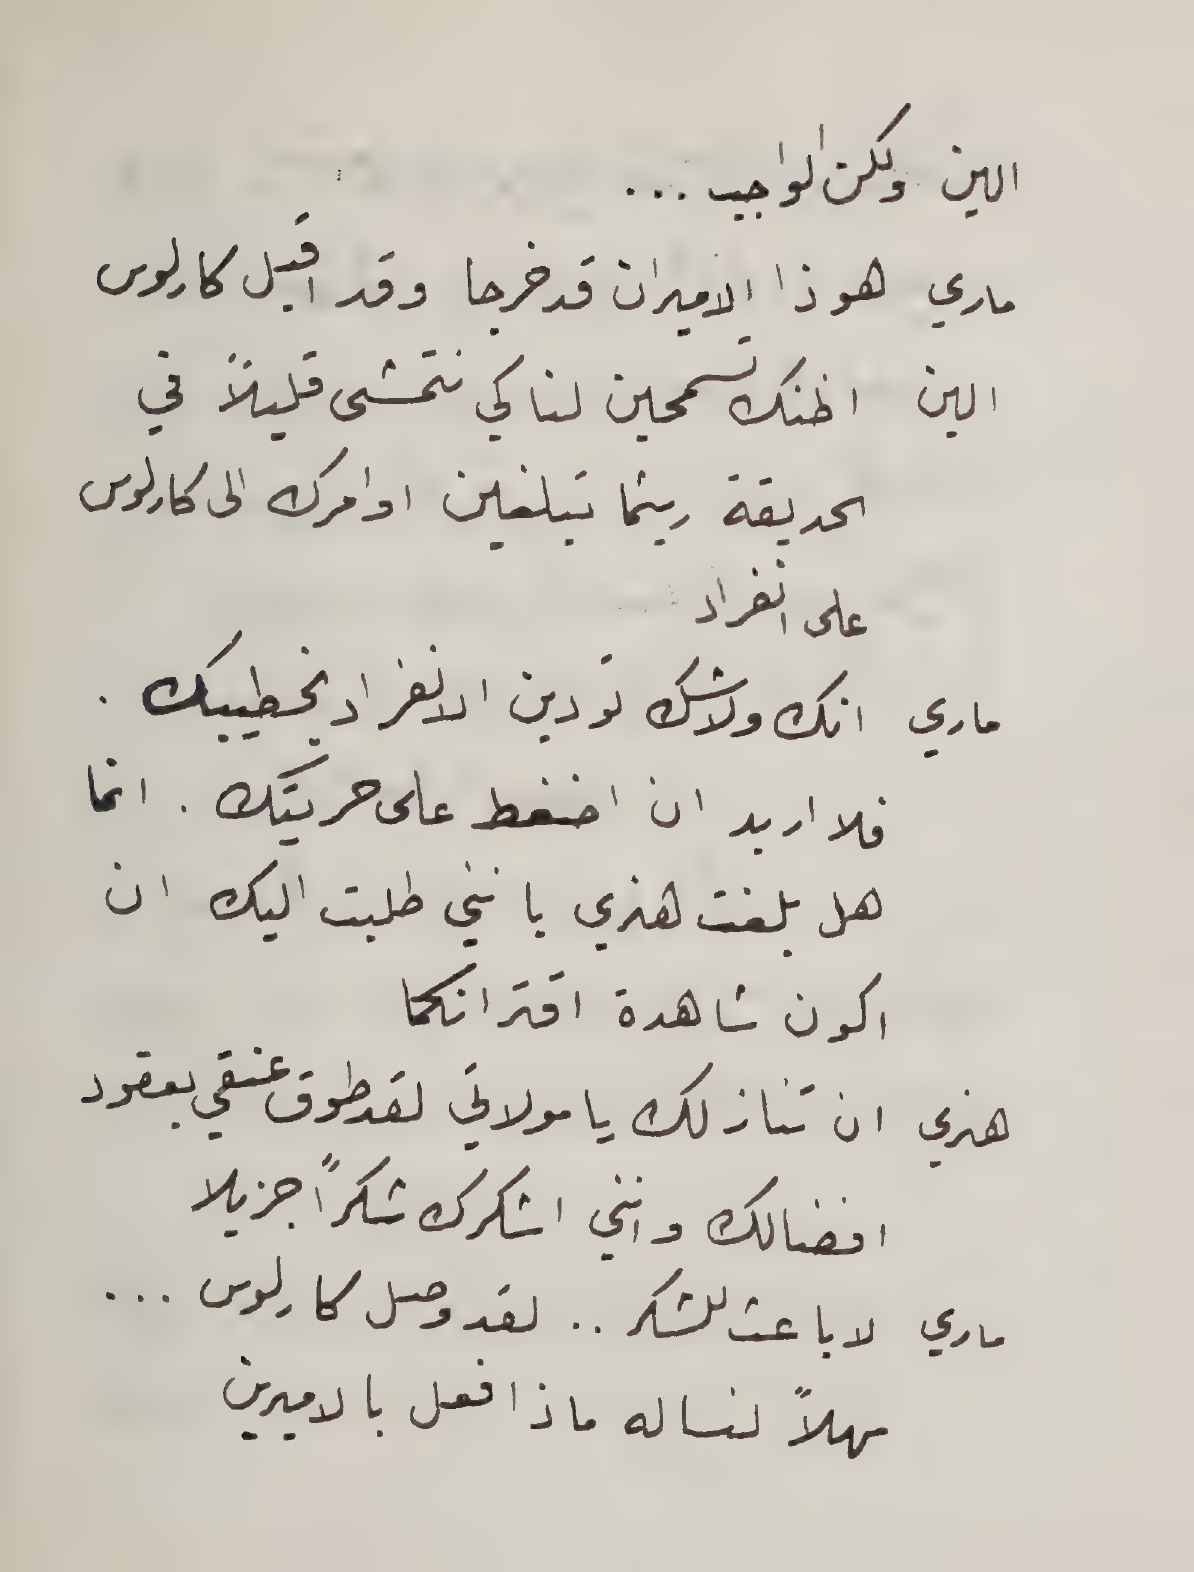 الين ولكن الواجب ...
ماري هوذا الاميران قد خرجا وقد اقبل كارلوس
الين اظنك تسمحين لنا كي نتمشى قليلاً في
الحديقة ريثما تبلغين اوامرك الى كارلوس
على انفراد
ماري انك ولاشك تودين الانفراد بخطيبك .
فلا اريد ان اضغط على حريتك . انما
هل بلغت هنري بانني طلبت اليك ان
اكون شاهدة اقترانكما
هنري ان تنازلك يا مولاتي لقد طوق عنقي بعقود
افضالك وانني اشكرك شكراً جزيلا
ماري لا باعث للشكر .. لقد وصل كارلوس ...
مهلاً لنساله ماذا فعل بالاميرين